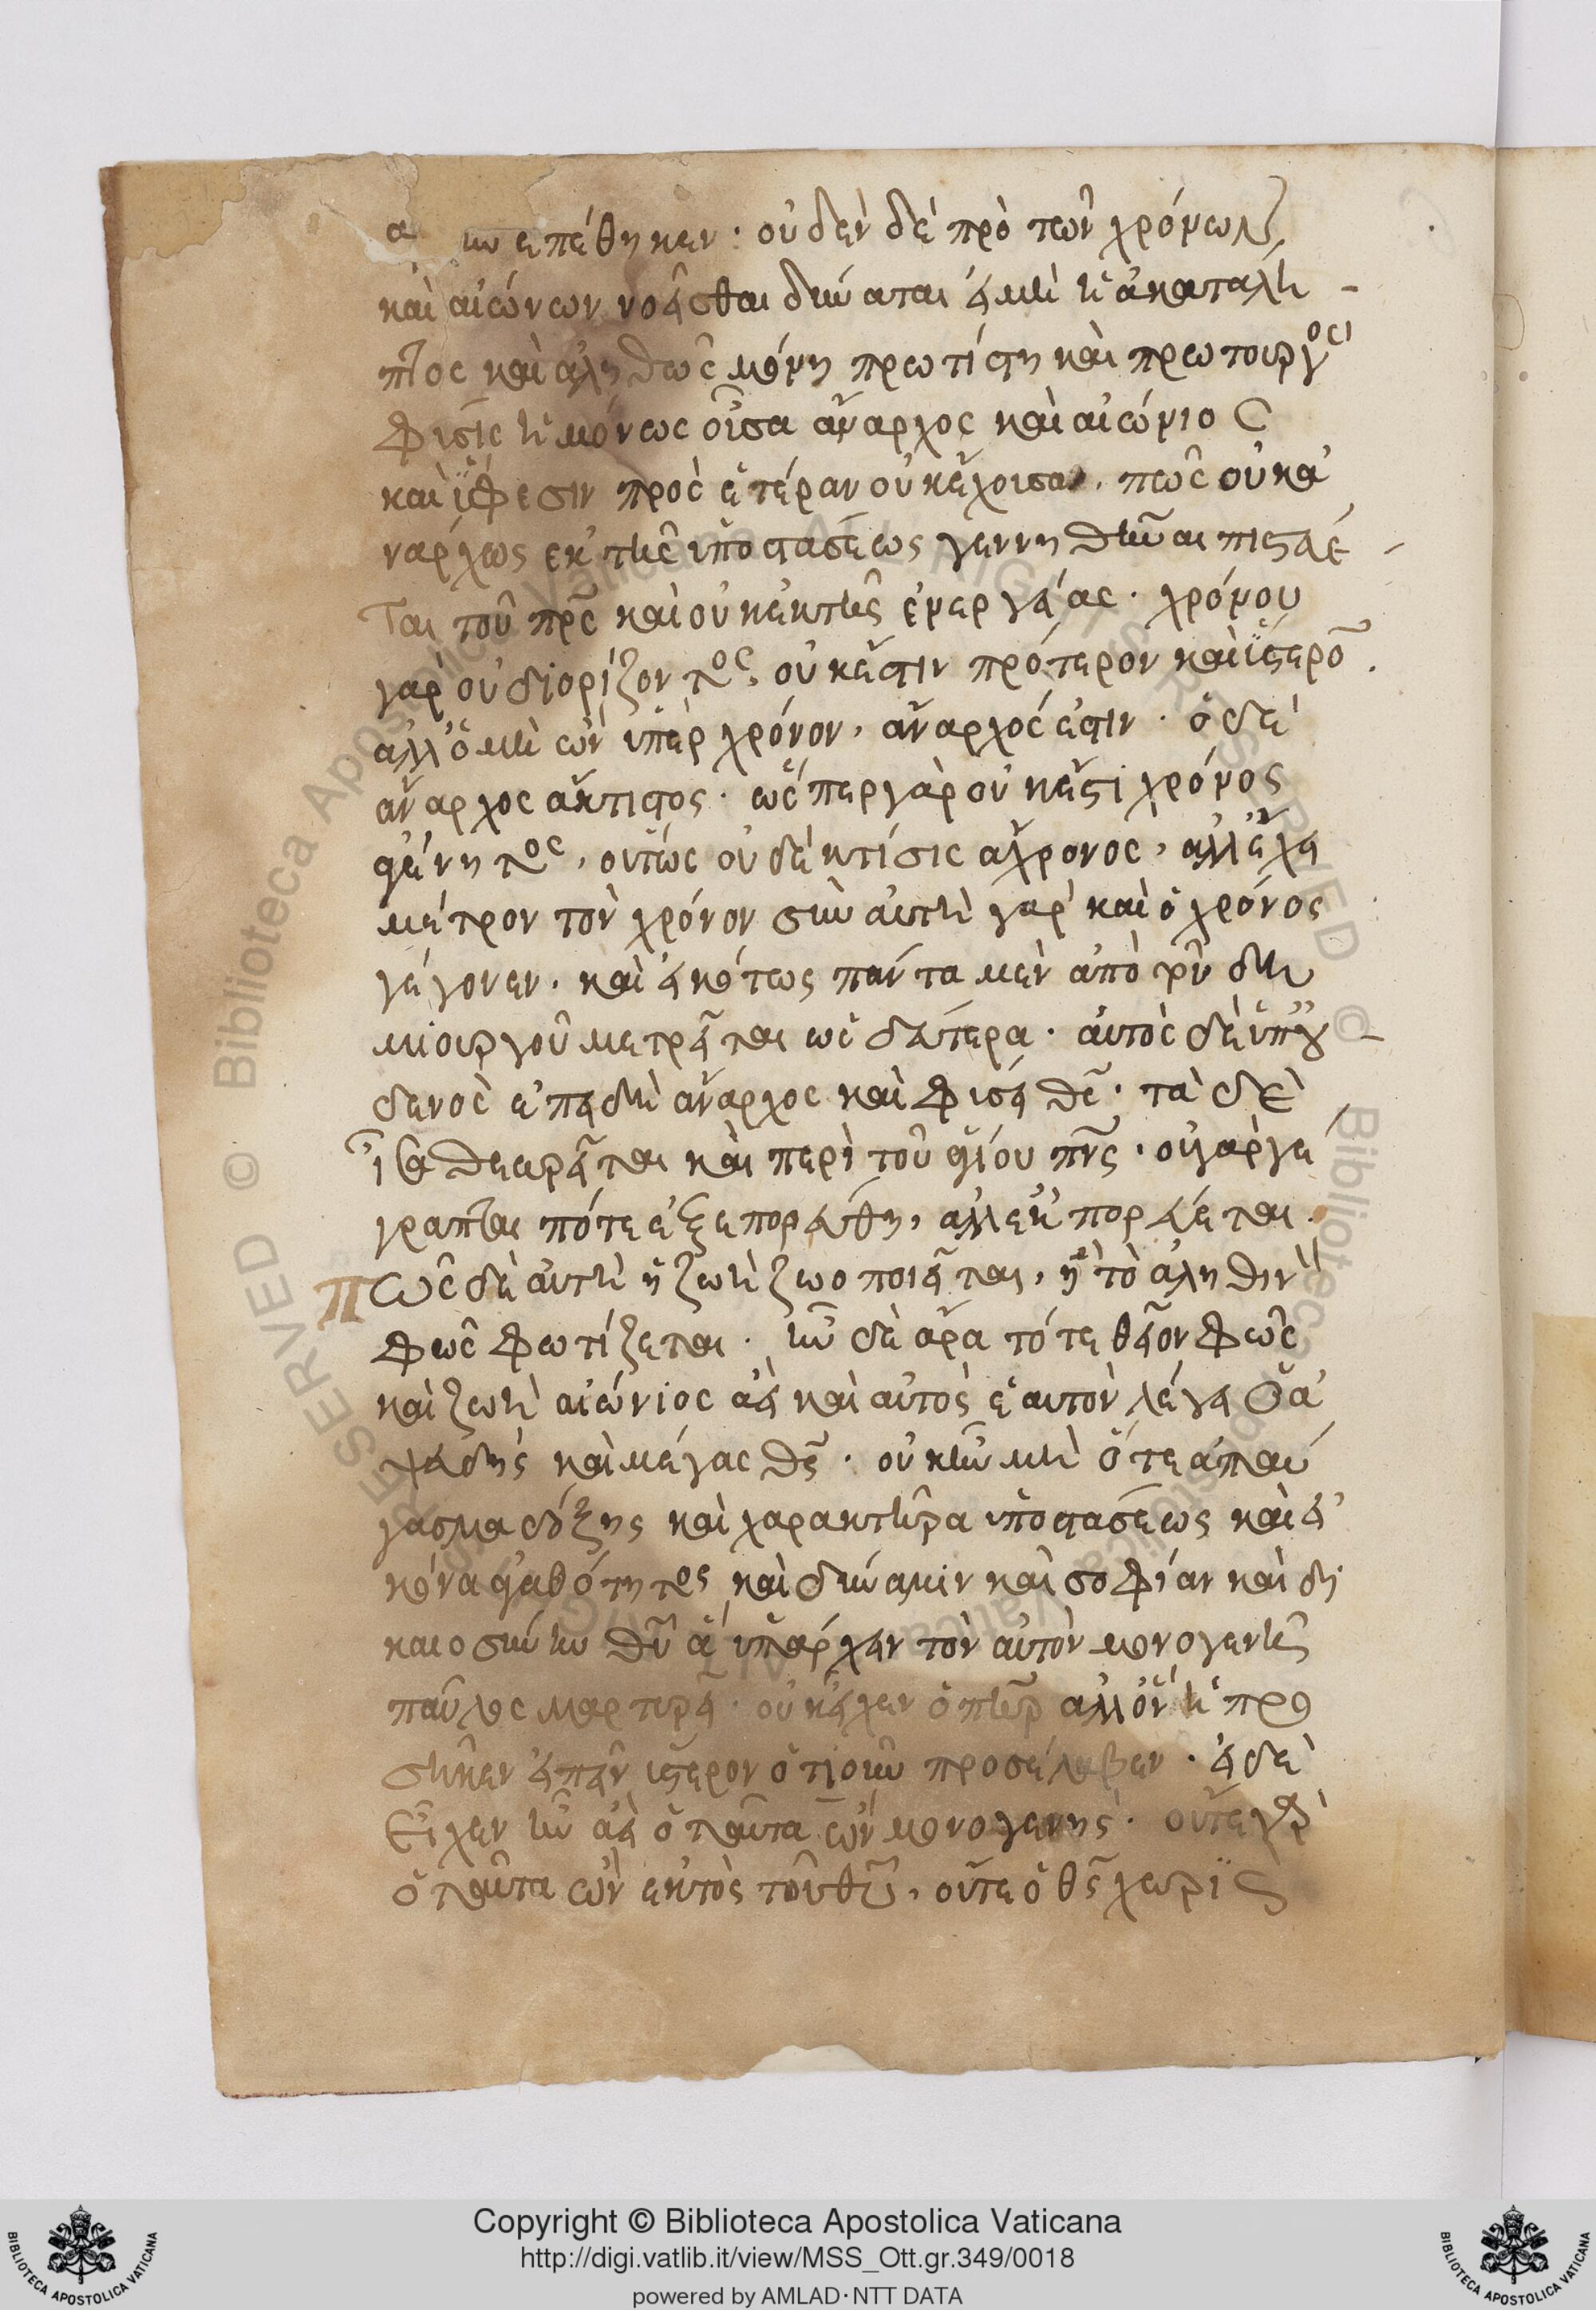 ἐπέθηκεν· οὐδὲν δὲ πρὸ τῶν χρόνων
καὶ αἰώνων νοεῖσθαι δύναται εἰ μὴ ἡ ἀκατάλη
πτος καὶ ἀληθῶς μόνη πρωτίστη καὶ πρωτουργὸς
φύσις ἡ μόνως οὖσα ἄναρχος καὶ αἰώνιος
καὶ ὕφεσιν πρὸς ἑτέραν οὐκ ἔχουσα, πῶς οὐκ ἀ
νάρχως ἐκ τῆς ὑποστάσεως γεννηθῆναι πιστεύε
ται τοῦ πρς καὶ οὐκ ἐκ τῆς ἐνεργείας· χρόνου
γὰρ οὐ διορίζοντος, οὐκ ἔστιν πρότερον καὶ ὕστερον.
ἀλλ' ὁ μὴ ὢν ὑπὲρ χρόνον, ἄναρχός ἐστιν· ὁ δὲ
ἄναρχος ἄκτιστος· ὥσπερ γὰρ οὐκ ἔστι χρόνος
ἀγένητος, οὕτως οὐδὲ κτίσις ἄχρονος, ἀλλ' ἔχει
μέτρον τὸν χρόνον σὺν αὐτῇ γὰρ καὶ ὁ χρόνος
γέγονεν, καὶ εἰκότως πάντα μὲν ἀπὸ τοῦ δη
μιουργοῦ μετρεῖται ὡς δεύτερα· αὐτὸς δὲ ὑπ' οὐ
δενὸς ἐπειδὴ ἄναρχος καὶ φύσει θς· τὰ δὲ
ἴσα θεωρεῖται καὶ περὶ τοῦ ἁγίου πνς, οὐ γὰρ γέ
γραπται πότε ἐξεπορεύθη, ἀλλ' ἐκπορεύεται.
Πῶς δὲ αὐτὴ ἡ ζωὴ ζωοποιεῖται, ἢ τὸ ἀληθινὸν
φῶς φωτίζεται· ἦν δὲ ἄρα τότε θεῖον φῶς
καὶ ζωὴ αἰώνιος ἀεὶ καὶ αὐτὸς ἑαυτὸν λέγει ὁ ἀ
ψευδὴς καὶ μέγας θς· οὐκ ἦν μὴ ὅτε ἀπαύ
γασμα δόξης καὶ χαρακτῆρα ὑποστάσεως καὶ εἰ
κόνα ἀγαθότητος καὶ δύναμιν καὶ σοφίαν καὶ δι
καιοσύνην θυ ἀεὶ ὑπάρχειν τὸν αὐτὸν μονογενῆ
παῦλος μαρτυρεῖ· οὐκ εἶχεν ὁ πὴρ ἀλλ' ὃν ἢ προ
σῆκεν εἰπεῖν ὕστερον ὁτιοῦν προσέλαβεν· εἰ δὲ
εἶχεν ἦν ἀεὶ ὁ ταῦτα ὢν μονογενής· οὔτε γὰρ
ὁ ταῦτα ὢν ἐκτὸς τοῦ θυ, οὔτε ὁ θς χωρὶς
Copyright © Biblioteca Apostolica Vaticana
http://digi.vatlib.it/view/MSS_Ott.gr.349/0018
powered by AMLAD·NTT DATA